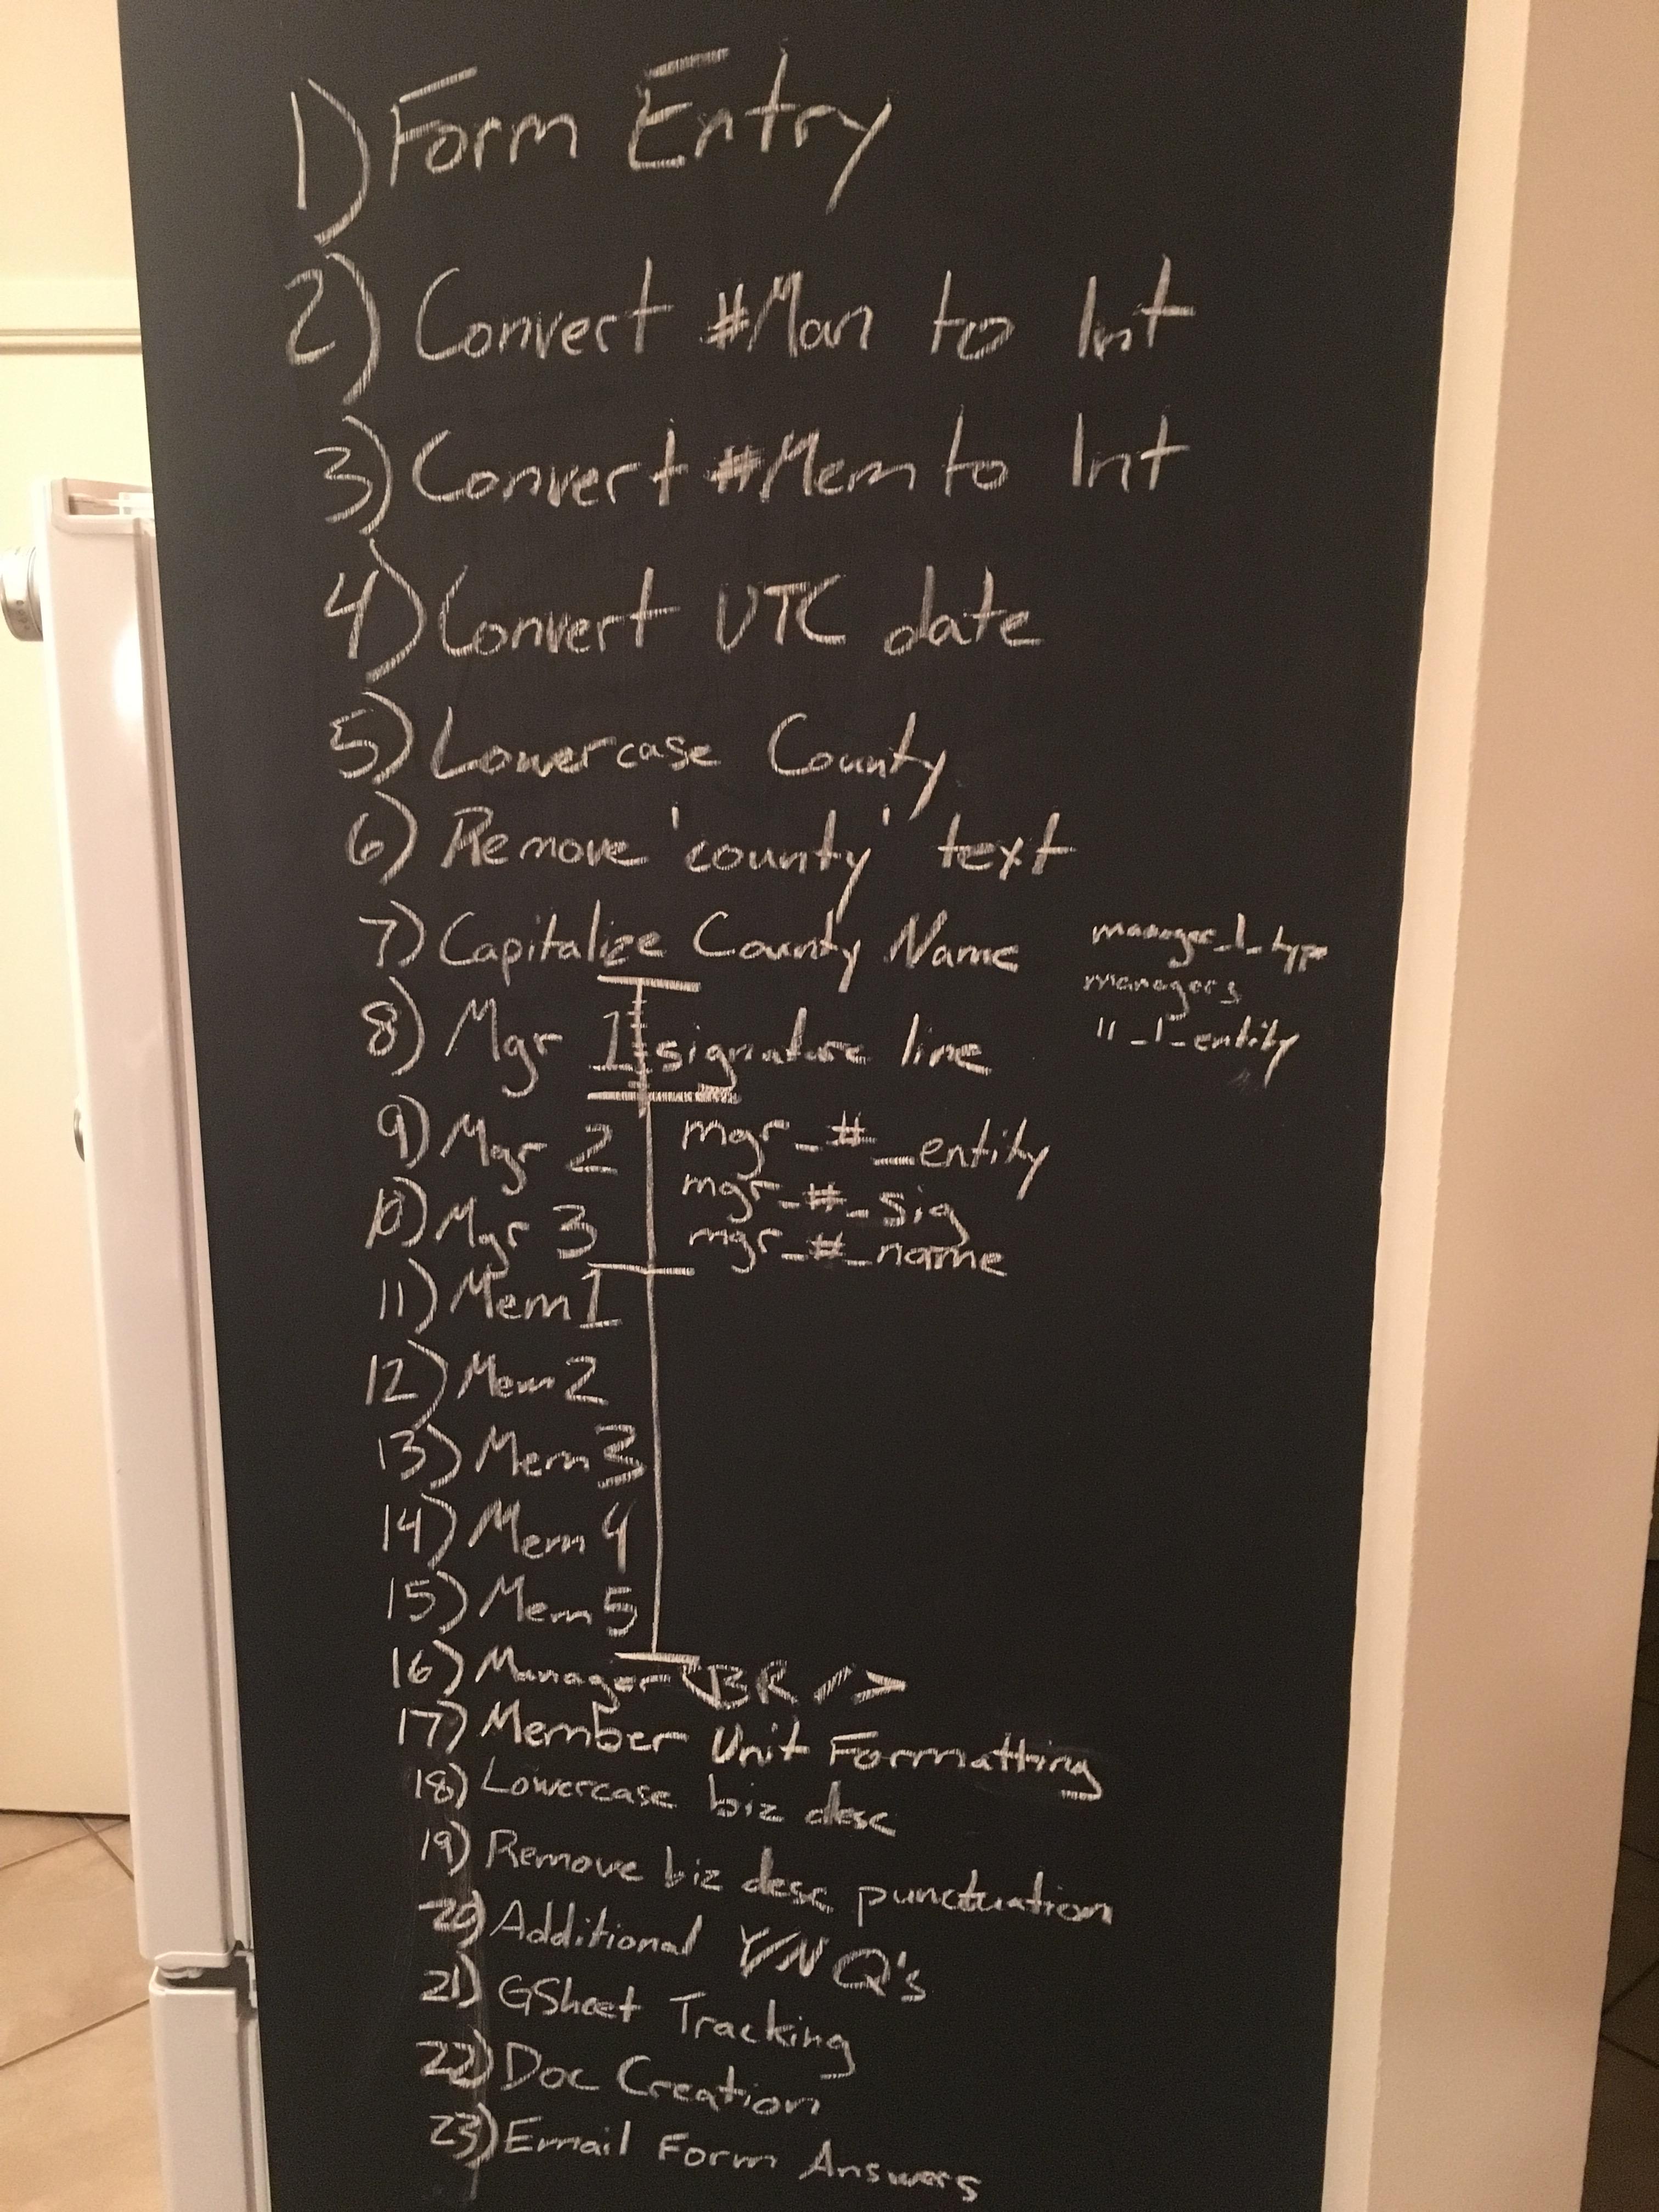 1) Form Entry
2) Convert #Man to Int
3) Convert #Mem to Int
4) Convert UTC date
5) Lowercase County
6) Remove 'county' text
7) Capitalize County Name
manager_1_type
managers
"_1_entity
8) Mgr 1 signature line
9) Mgr 2
mgr_#_entity
mgr_#_sig
10) Mgr 3
mgr_#_name
11) Mem 1
12) Mem 2
13) Mem 3
14) Mem 4
15) Mem 5
16) Manager <BR />
17) Member Unit Formatting
18) Lowercase biz desc
19) Remove biz desc punctuation
20) Additional Y/N Q's
21) GSheet Tracking
22) Doc Creation
23) Email Form Answers